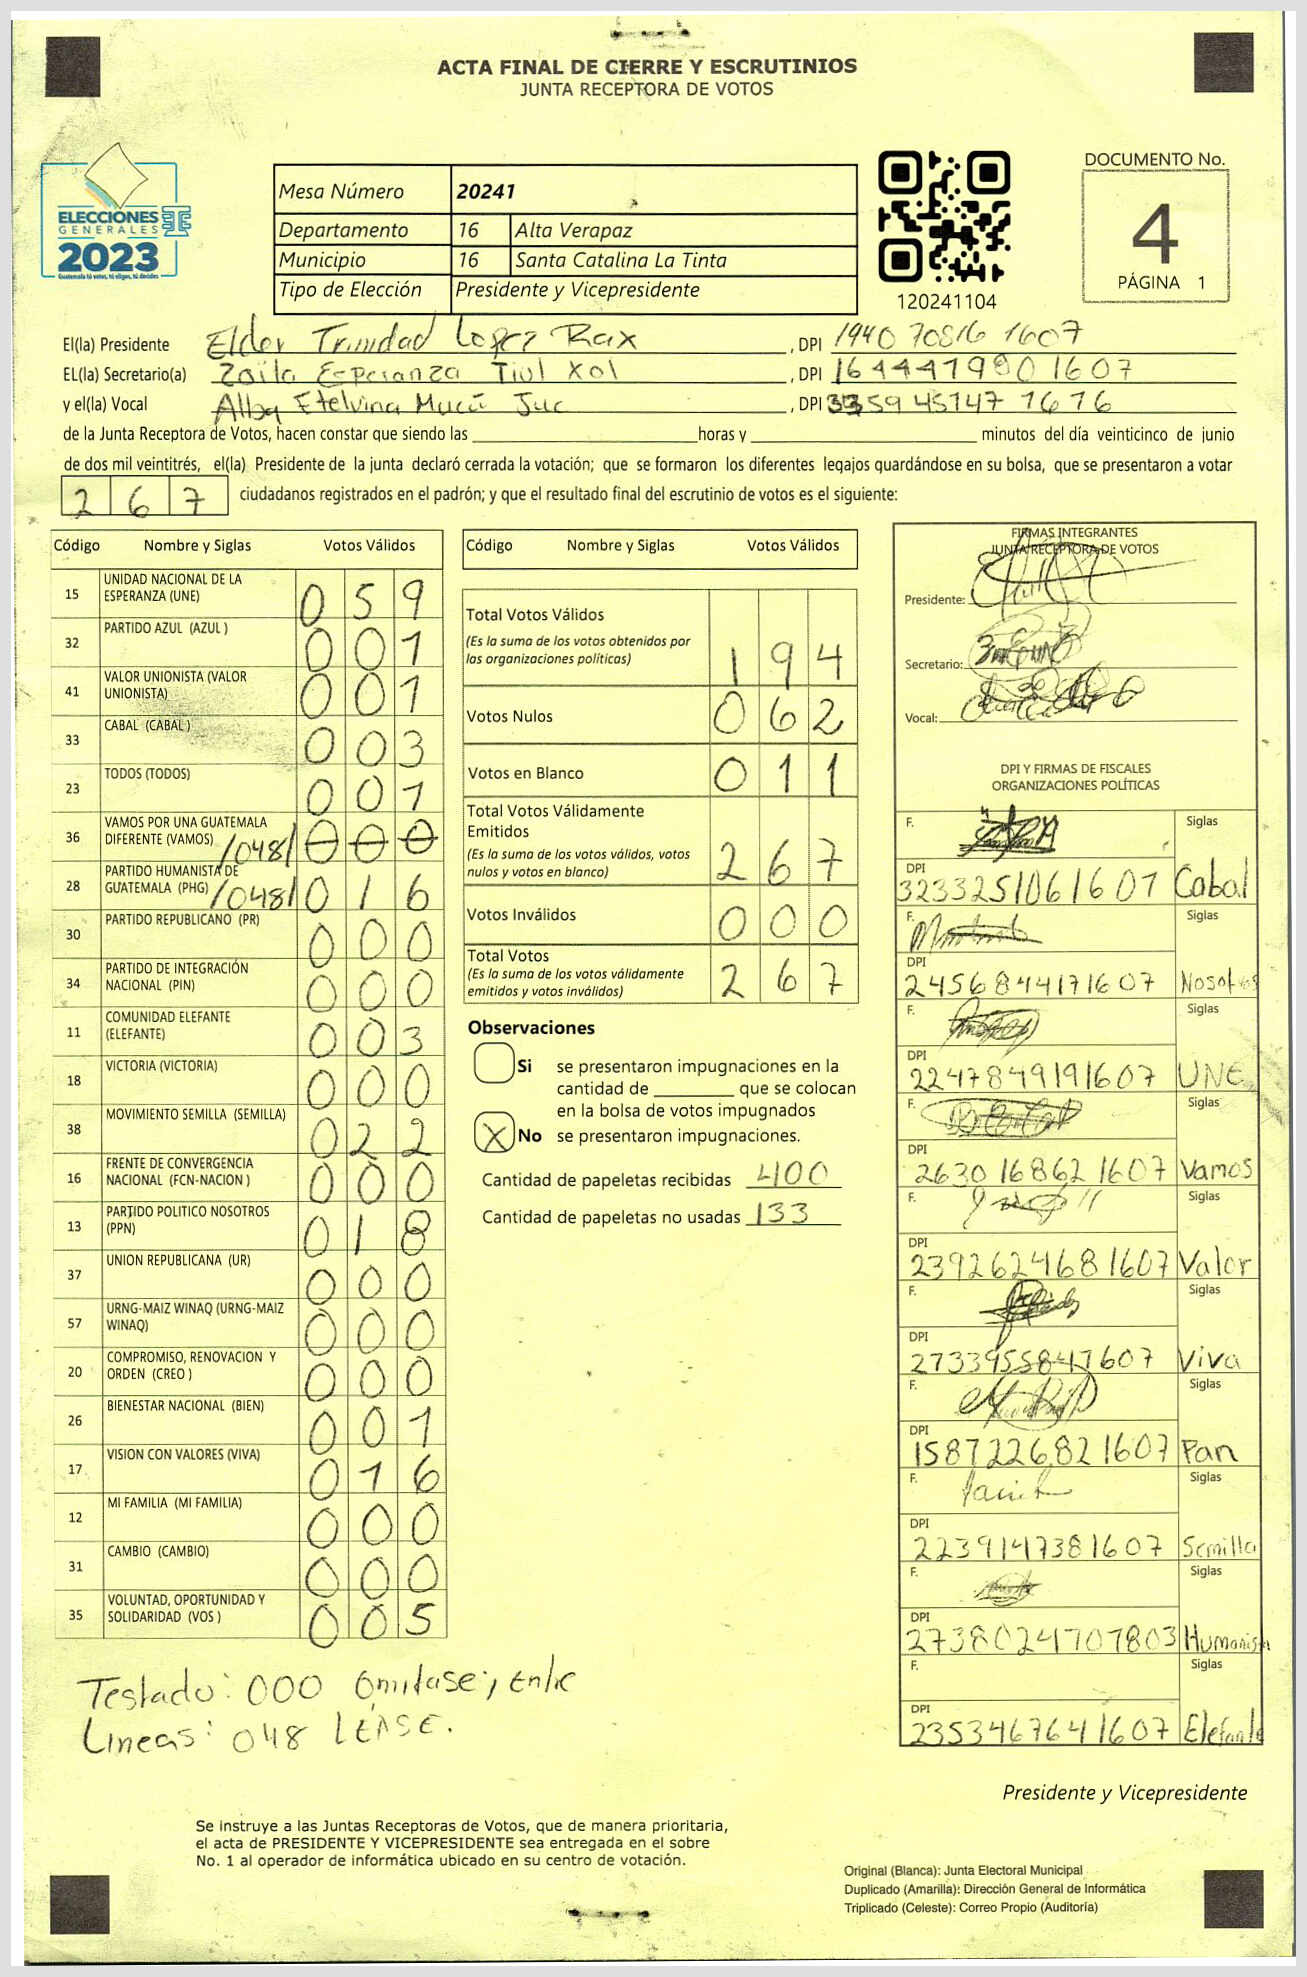 ACTA FINAL DE CIERRE Y ESCRUTINIOS
JUNTA RECEPTORA DE VOTOS
ELECCIONES
GENERALES
2023
Guatemala tú votas, tú eliges, tú decides
Mesa Número 20241
Departamento 16 Alta Verapaz
Municipio 16 Santa Catalina La Tinta
Tipo de Elección Presidente y Vicepresidente
120241104
DOCUMENTO No.
4
PÁGINA 1
El(la) Presidente Elder Trinidad Lopez Rax, DPI 1940 70816 1607
EL(la) Secretario(a) Zoila Esperanza Tiul Xol, DPI 1644479801607
y el(la) Vocal Alba Etelvina Mucú Juc, DPI 3359 45747 1616
de la Junta Receptora de Votos, hacen constar que siendo las ____ horas y ____ minutos del día veinticinco de junio
de dos mil veintitrés, el(la) Presidente de la junta declaró cerrada la votación; que se formaron los diferentes legajos guardándose en su bolsa, que se presentaron a votar
267 ciudadanos registrados en el padrón; y que el resultado final del escrutinio de votos es el siguiente:
Código Nombre y Siglas Votos Válidos
15 UNIDAD NACIONAL DE LA ESPERANZA (UNE) 059
32 PARTIDO AZUL (AZUL ) 001
41 VALOR UNIONISTA (VALOR UNIONISTA) 001
33 CABAL (CABAL ) 003
23 TODOS (TODOS) 001
36 VAMOS POR UNA GUATEMALA DIFERENTE (VAMOS) /048/ 000
28 PARTIDO HUMANISTA DE GUATEMALA (PHG) /048/ 016
30 PARTIDO REPUBLICANO (PR) 000
34 PARTIDO DE INTEGRACIÓN NACIONAL (PIN) 000
11 COMUNIDAD ELEFANTE (ELEFANTE) 003
18 VICTORIA (VICTORIA) 000
38 MOVIMIENTO SEMILLA (SEMILLA) 022
16 FRENTE DE CONVERGENCIA NACIONAL (FCN-NACION ) 000
13 PARTIDO POLITICO NOSOTROS (PPN) 018
37 UNION REPUBLICANA (UR) 000
57 URNG-MAIZ WINAQ (URNG-MAIZ WINAQ) 000
20 COMPROMISO, RENOVACION Y ORDEN (CREO ) 000
26 BIENESTAR NACIONAL (BIEN) 001
17 VISION CON VALORES (VIVA) 016
12 MI FAMILIA (MI FAMILIA) 000
31 CAMBIO (CAMBIO) 000
35 VOLUNTAD, OPORTUNIDAD Y SOLIDARIDAD (VOS ) 005
Testado: 000 Omitase; Entre
Lineas: 048 LEASE.
Código Nombre y Siglas Votos Válidos
Total Votos Válidos 194
(Es la suma de los votos obtenidos por
las organizaciones políticas)
Votos Nulos 062
Votos en Blanco 011
Total Votos Válidamente
Emitidos 267
(Es la suma de los votos válidos, votos
nulos y votos en blanco)
Votos Inválidos 000
Total Votos 267
(Es la suma de los votos válidamente
emitidos y votos inválidos)
Observaciones
Si se presentaron impugnaciones en la
cantidad de ____ que se colocan
en la bolsa de votos impugnados
X No se presentaron impugnaciones.
Cantidad de papeletas recibidas 400
Cantidad de papeletas no usadas 133
FIRMAS INTEGRANTES
JUNTA RECEPTORA DE VOTOS
Presidente:
Secretario:
Vocal:
DPI Y FIRMAS DE FISCALES
ORGANIZACIONES POLÍTICAS
F. Siglas
DPI 3233251061607 Cabal
F. Siglas
DPI 2456844171607 Nosotros
F. Siglas
DPI 2247849191607 UNE
F. Siglas
DPI 2630168621607 Vamos
F. Siglas
DPI 2392624681607 Valor
F. Siglas
DPI 2733955847607 Viva
F. Siglas
DPI 1587226821607 Pan
F. Siglas
DPI 2239147381607 Semilla
F. Siglas
DPI 2738024707803 Humanista
F. Siglas
DPI 2353467641607 Elefante
Presidente y Vicepresidente
Se instruye a las Juntas Receptoras de Votos, que de manera prioritaria,
el acta de PRESIDENTE Y VICEPRESIDENTE sea entregada en el sobre
No. 1 al operador de informática ubicado en su centro de votación.
Original (Blanca): Junta Electoral Municipal
Duplicado (Amarilla): Dirección General de Informática
Triplicado (Celeste): Correo Propio (Auditoría)